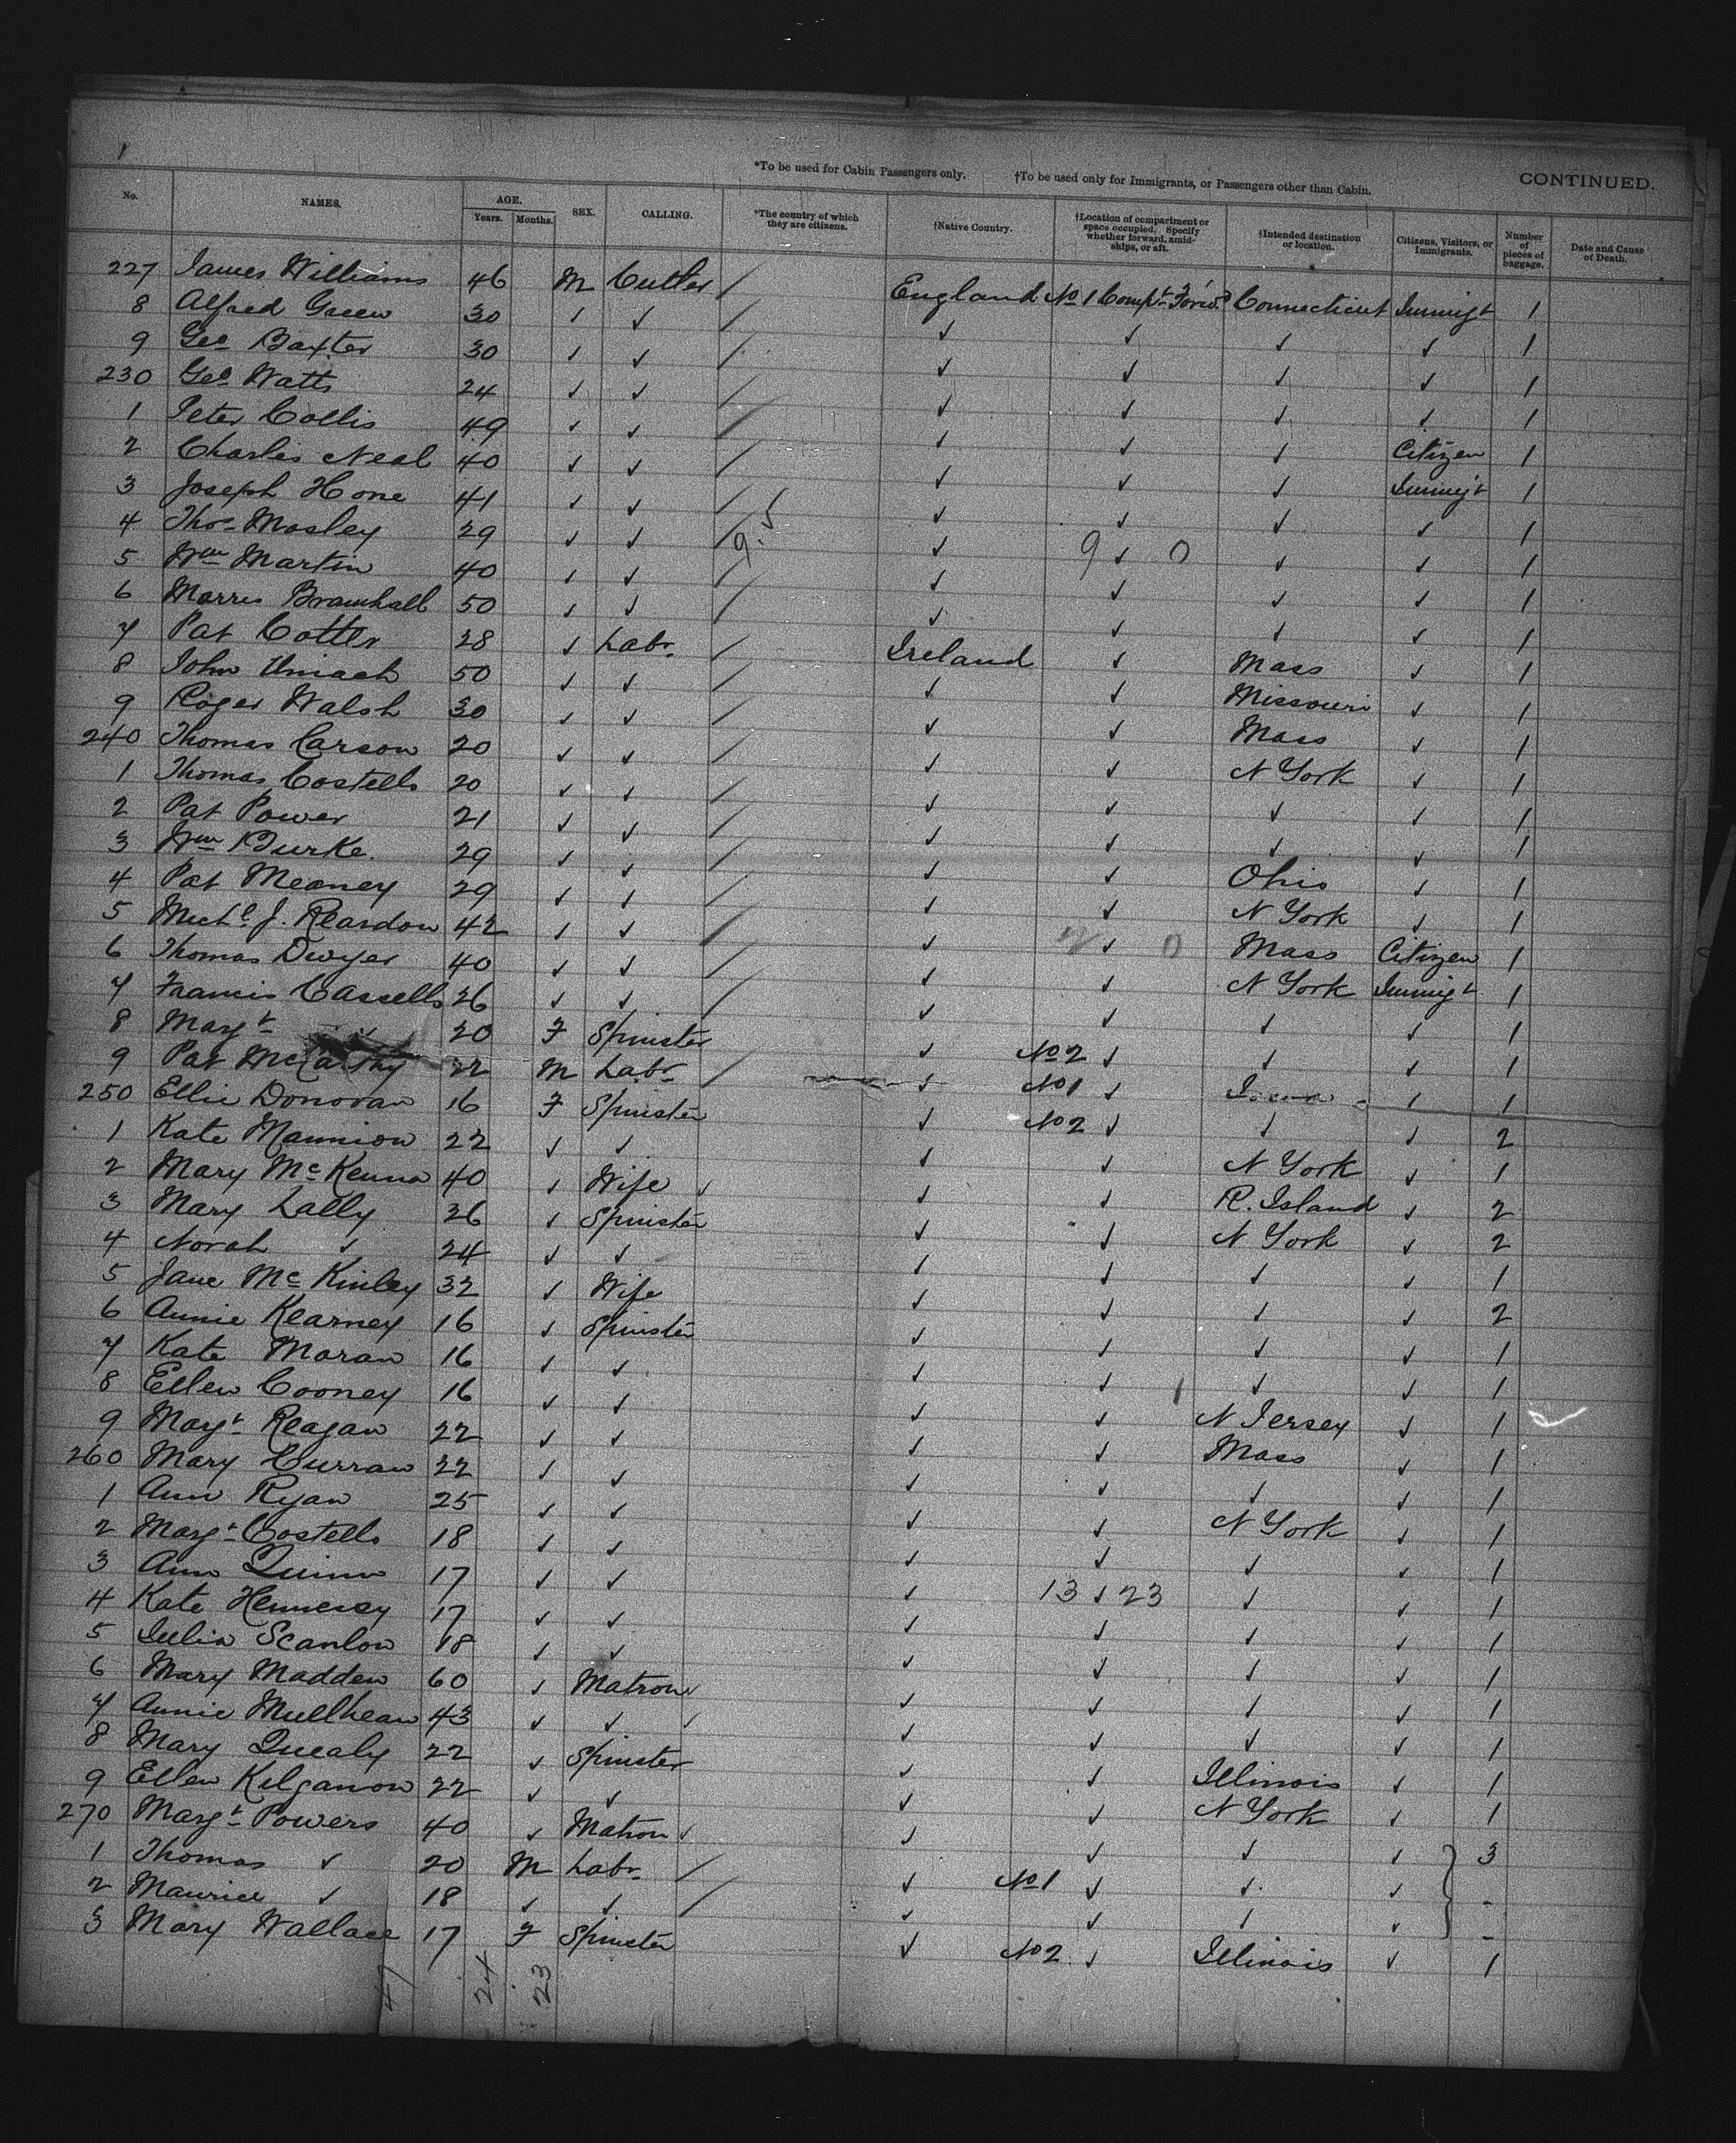 *To be used for Cabin Passengers only. †To be used only for Immigrants, or Passengers other than Cabin. CONTINUED.
No. NAMES. AGE. Years. Months. SEX. CALLING. *The country of which they are citizens. †Native Country. †Location of compartment or space occupied. Specify whether forward, amidships, or aft. †Intended destination or location. Citizens, Visitors, or Immigrants. Number of pieces of baggage. Date and Cause of Death.
227 James Williams 46 M Cutler / England No 1 Compt Forwd Connecticut Immigt 1
8 Alfred Green 30 ✓ ✓ / ✓ ✓ ✓ ✓ 1
9 Geo Baxter 30 ✓ ✓ / ✓ ✓ ✓ ✓ 1
230 Geo Watts 24 ✓ ✓ / ✓ ✓ ✓ ✓ 1
1 Peter Collis 49 ✓ ✓ / ✓ ✓ ✓ Citizen 1
2 Charles Neal 40 ✓ ✓ / ✓ ✓ ✓ Immigt 1
3 Joseph Hone 41 ✓ ✓ / ✓ ✓ ✓ ✓ 1
4 Thos Mosley 29 ✓ ✓ / 9 ✓ 9 ✓ 0 ✓ ✓ 1
5 Wm Martin 40 ✓ ✓ / ✓ ✓ ✓ ✓ 1
6 Morris Bramhall 50 ✓ ✓ / ✓ ✓ ✓ ✓ 1
7 Pat Cotter 28 ✓ Labr / Ireland ✓ Mass ✓ 1
8 John Uniach 50 ✓ ✓ / ✓ ✓ Missouri ✓ 1
9 Roger Walsh 30 ✓ ✓ / ✓ ✓ Mass ✓ 1
240 Thomas Carson 20 ✓ ✓ / ✓ ✓ N York ✓ 1
1 Thomas Costello 20 ✓ ✓ / ✓ ✓ ✓ ✓ 1
2 Pat Power 21 ✓ ✓ / ✓ ✓ ✓ ✓ 1
3 Wm Burke. 29 ✓ ✓ / ✓ ✓ Ohio ✓ 1
4 Pat Meaney 29 ✓ ✓ / ✓ ✓ N York ✓ 1
5 Michl J. Reardon 42 ✓ ✓ / ✓ ✓ 0 Mass Citizen 1
6 Thomas Dwyer 40 ✓ ✓ / ✓ ✓ N York Immigt 1
7 Francis Cassells 26 ✓ ✓ / ✓ ✓ ✓ ✓ 1
8 Margt 20 F Spinster ✓ No 2 ✓ ✓ ✓ 1
9 Pat McCarthy 22 M Labr / ✓ No 1 ✓ Iowa ✓ 1
250 Ellie Donovan 16 F Spinster ✓ No 2 ✓ ✓ ✓ 2
1 Kate Mannion 22 ✓ ✓ ✓ ✓ N York ✓ 1
2 Mary McKenna 40 ✓ Wife ✓ ✓ ✓ R. Island ✓ 2
3 Mary Lally 26 ✓ Spinster ✓ ✓ N York ✓ 2
4 Norah ✓ 24 ✓ ✓ ✓ ✓ ✓ ✓ 1
5 Jane McKinley 32 ✓ Wife ✓ ✓ ✓ ✓ 2
6 Annie Kearney 16 ✓ Spinster ✓ ✓ ✓ ✓ 1
7 Kate Moran 16 ✓ ✓ ✓ ✓ ✓ ✓ 1
8 Ellen Cooney 16 ✓ ✓ ✓ ✓ N Jersey ✓ 1
9 Margt Reagan 22 ✓ ✓ ✓ ✓ Mass ✓ 1
260 Mary Curran 22 ✓ ✓ ✓ ✓ ✓ ✓ 1
1 Ann Ryan 25 ✓ ✓ ✓ ✓ N York ✓ 1
2 Margt Costello 18 ✓ ✓ ✓ ✓ ✓ ✓ 1
3 Ann Quinn 17 ✓ ✓ ✓ 13 ✓ 23 ✓ ✓ 1
4 Kate Hennessy 17 ✓ ✓ ✓ ✓ ✓ ✓ 1
5 Julia Scanlon 18 ✓ ✓ ✓ ✓ ✓ ✓ 1
6 Mary Madden 60 ✓ Matron ✓ ✓ ✓ ✓ ✓ 1
7 Annie Mullhean 43 ✓ ✓ ✓ ✓ ✓ ✓ ✓ 1
8 Mary Quealy 22 ✓ Spinster ✓ ✓ Illinois ✓ 1
9 Ellen Kilganon 22 ✓ ✓ ✓ ✓ N York ✓ 1
270 Margt Powers 40 ✓ Matron ✓ ✓ ✓ ✓ ✓ 3
1 Thomas ✓ 20 M Labr / ✓ No 1 ✓ ✓ ✓ -
2 Maurice ✓ 18 ✓ ✓ / ✓ ✓ ✓ ✓ -
3 Mary Wallace 17 F Spinster ✓ No 2 ✓ Illinois ✓ 1
47 24 23